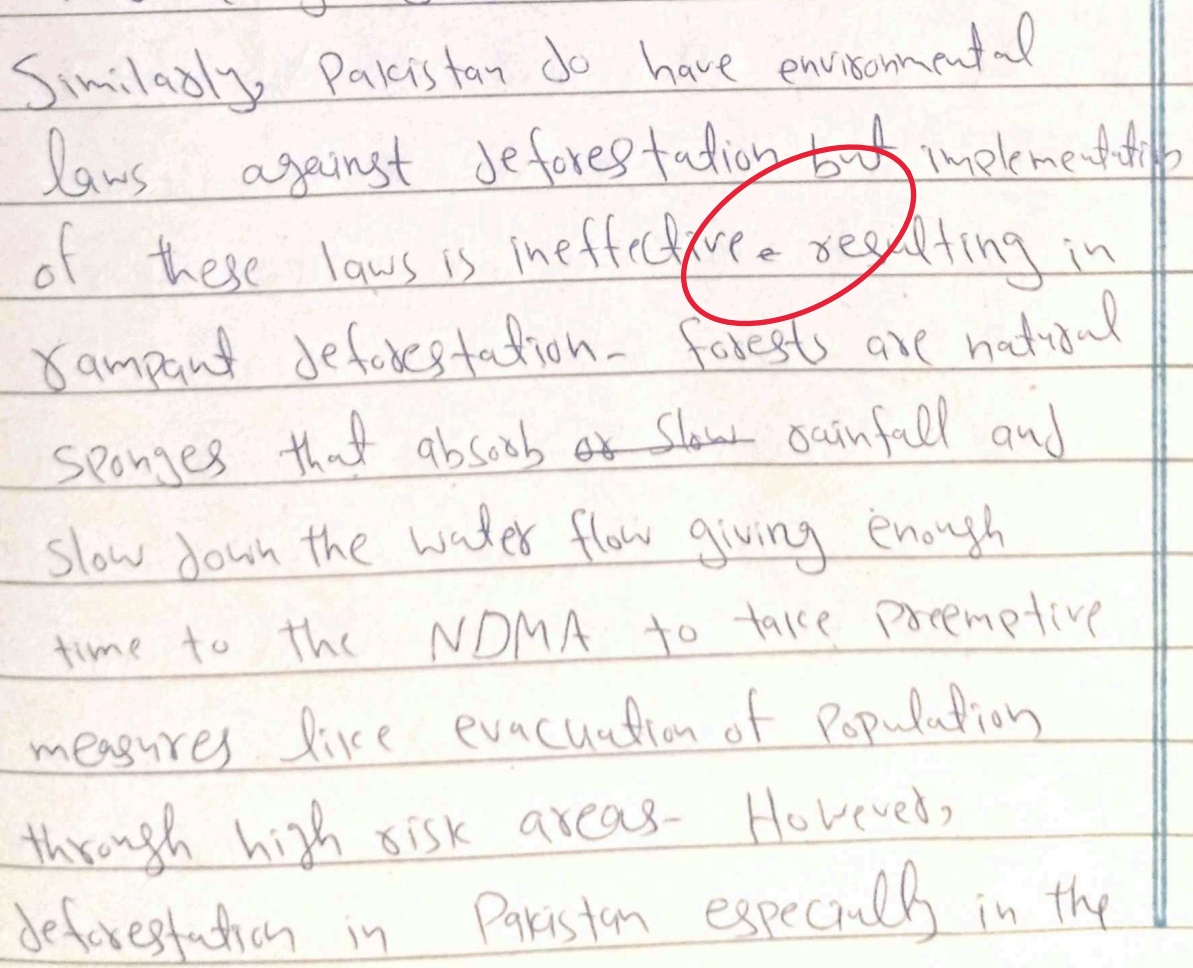 Similarly, Pakistan do have environmental
laws against deforestation but implementation
of these laws is ineffective. resulting in
rampant deforestation- forests are natural
sponges that absorb or slow rainfall and
slow down the water flow giving enough
time to the NDMA to take preemptive
measures like evacuation of population
through high risk areas- However,
deforestation in Pakistan especially in the